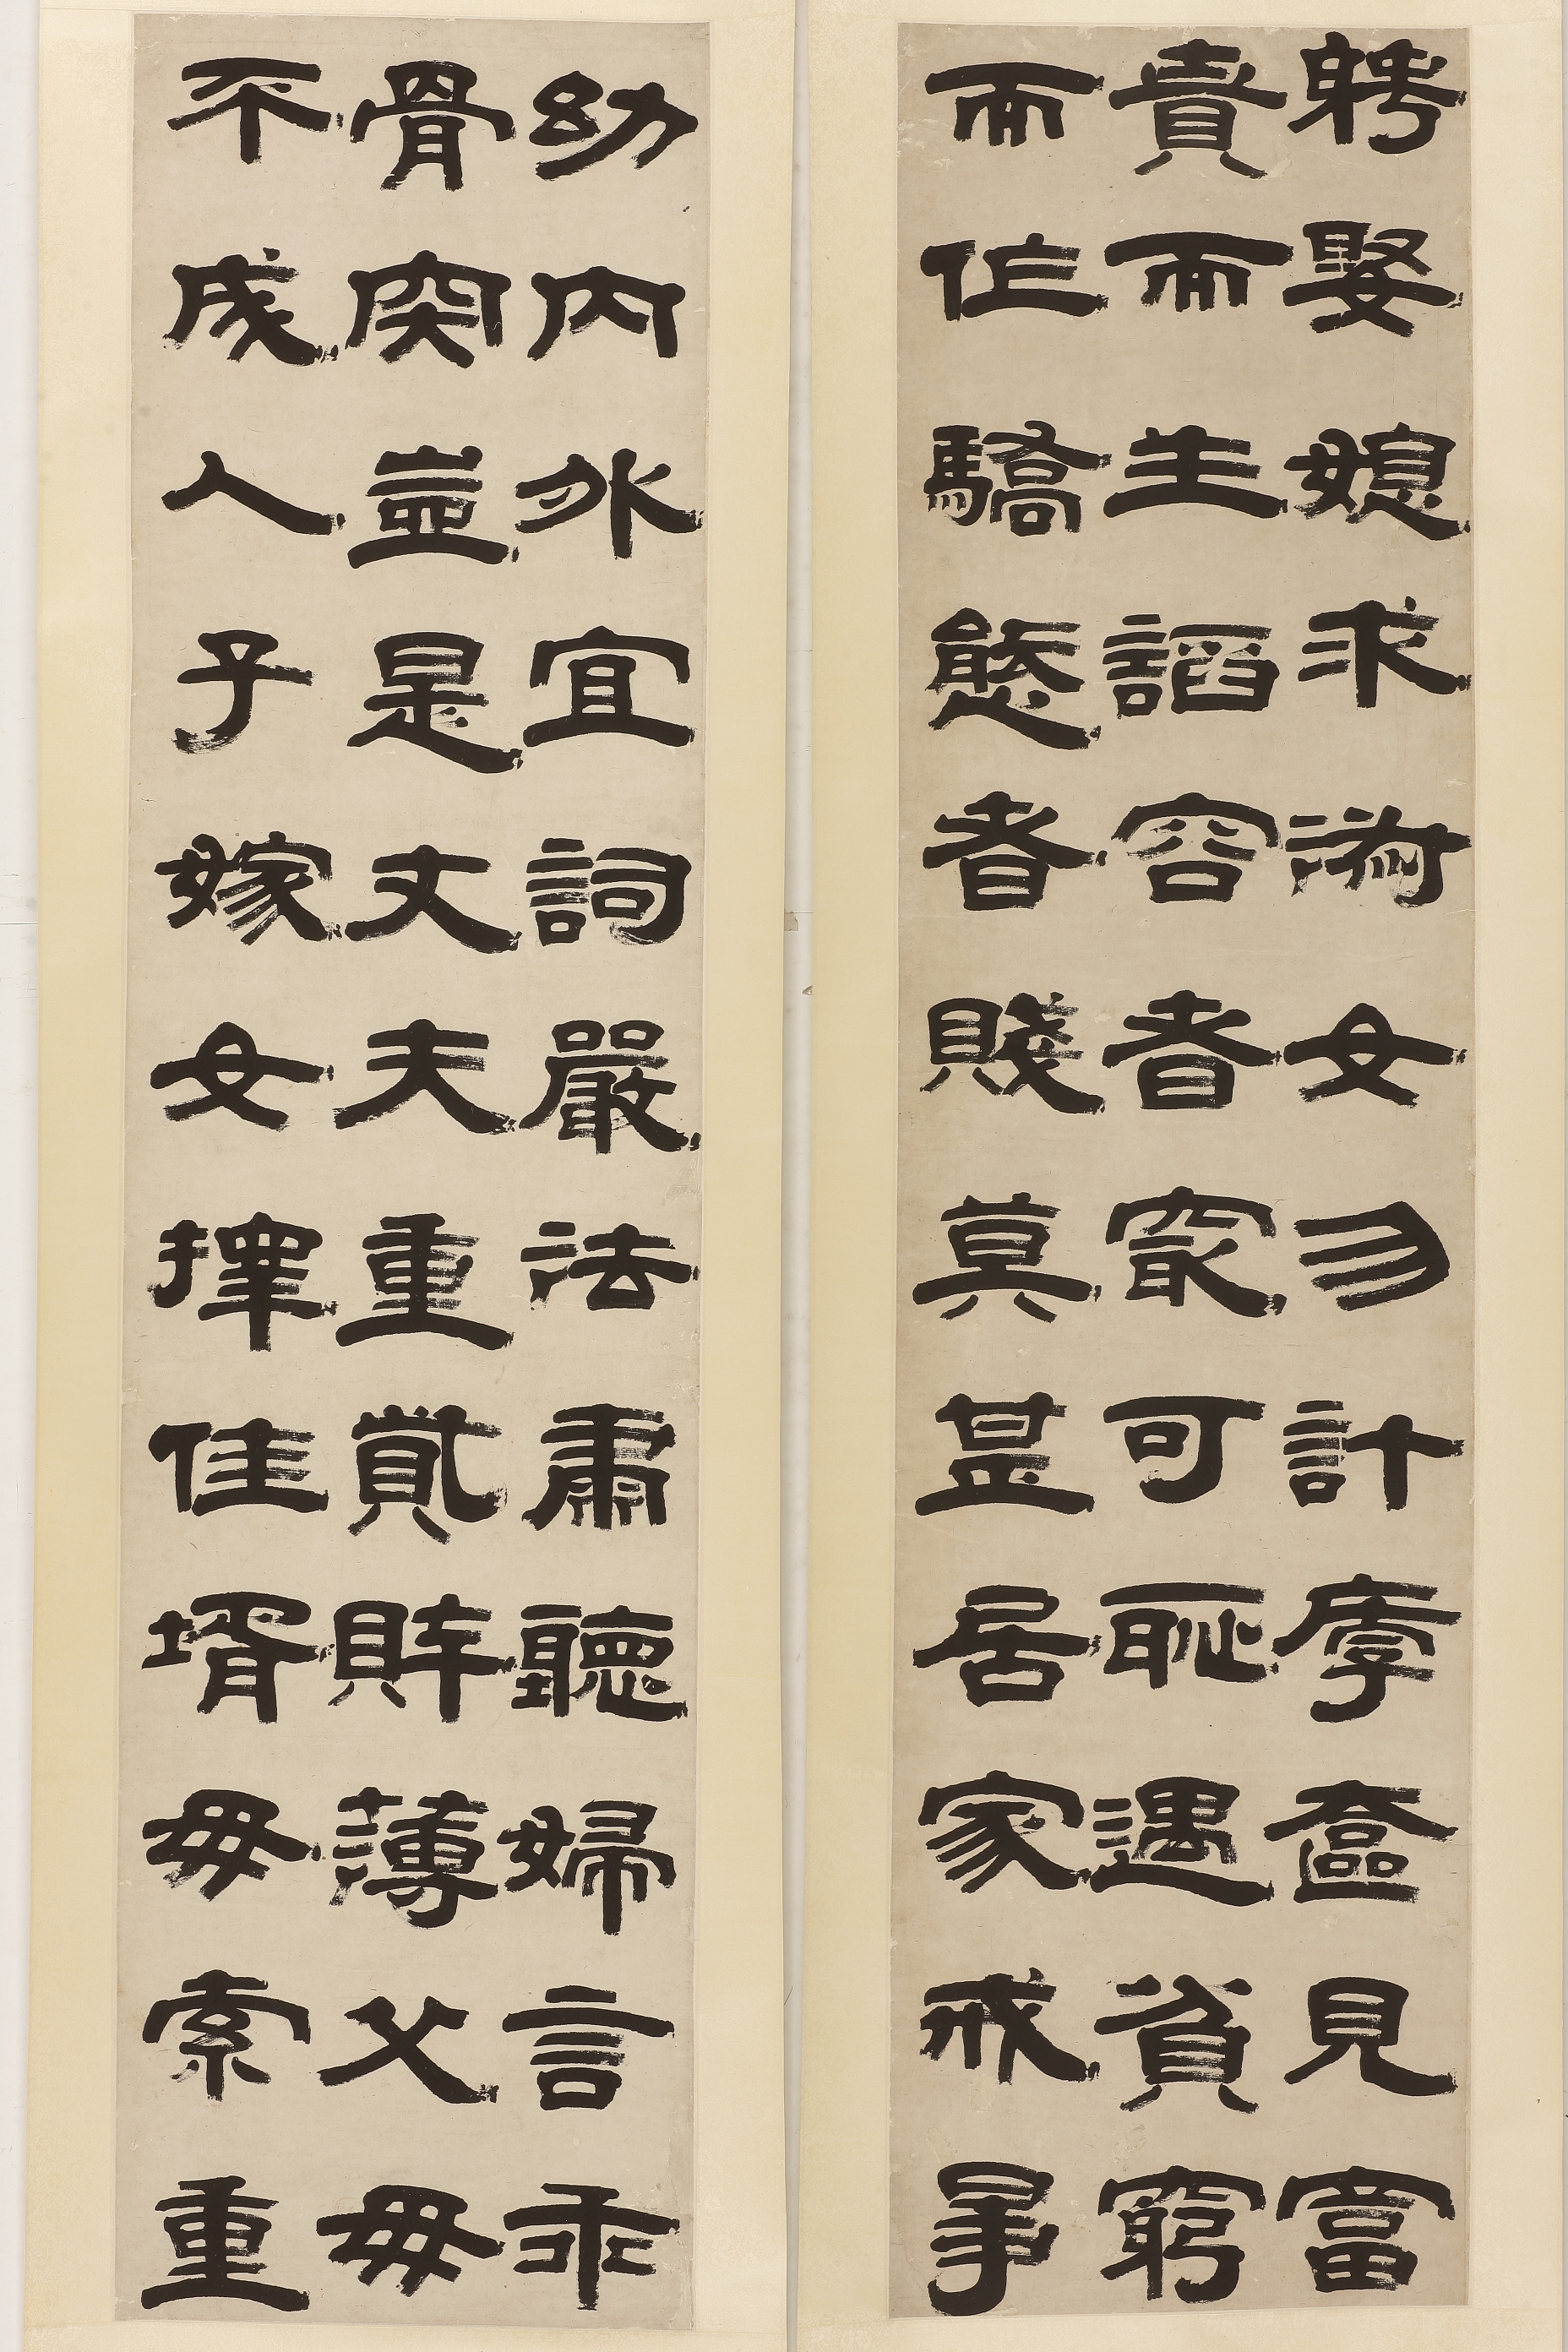 幼內外宜詞嚴法肅聽婦言乖
骨肉豈是丈夫重貲財薄父母
不成人子嫁女擇佳壻毋索重
聘娶媳求淑女勿計厚奩見富
貴而生謟容者最可恥遇貧窮
而作驕態者賤莫甚居家戒爭